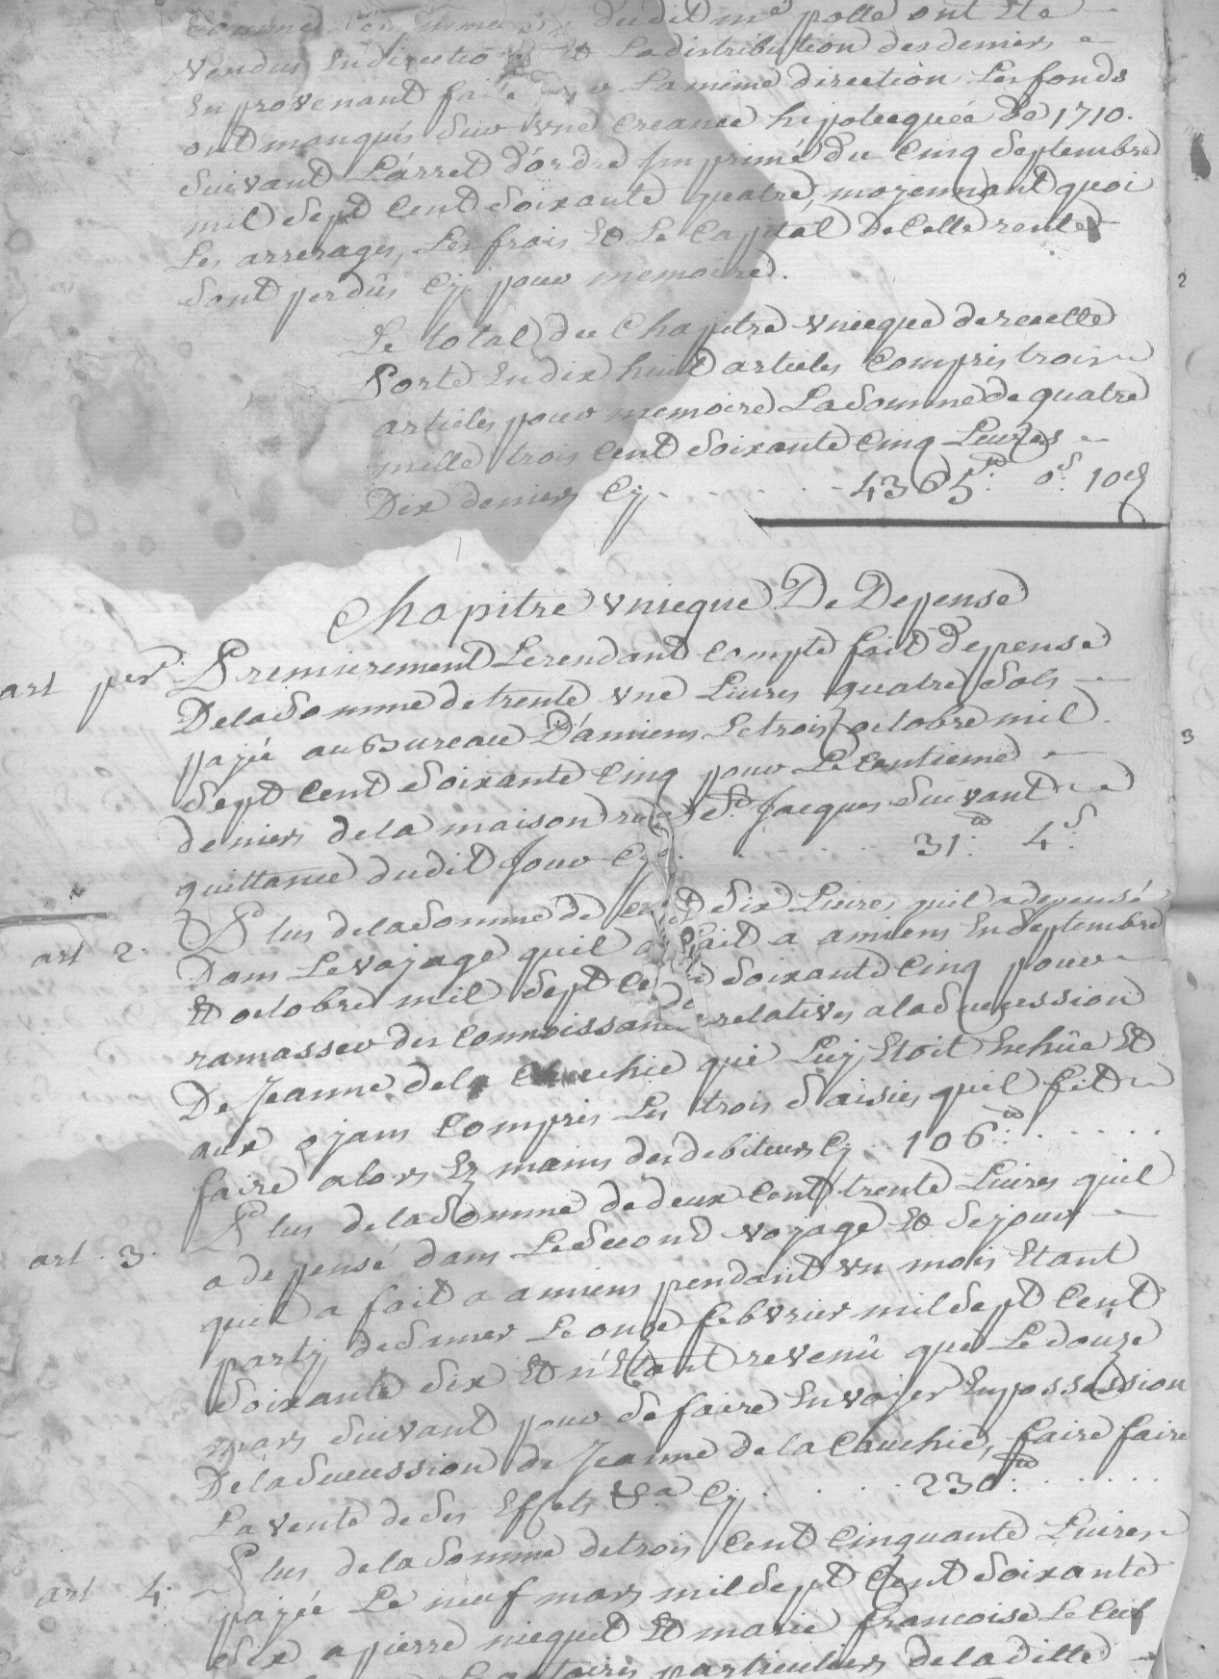 dudit me polle ont été
vendus En direction et La distribution des deniers
En provenant faite La même direction Les fonds
ont manqués sur une Creance hipotecquée de 1710.
suivant L'arret D'ordre Imprimé du Cinq septembre
mil sept Cent soixante quatre, moyennant quoi
Les arrerages, Les frais Et Le Capital De Cette rente
sont perdûs Cy pour memoire.
Le total du Chapitre vnicque de recette
Porte En dix huit articles Compris trois
articles pour memoire La somme de quatre
mille trois Cent soixante Cinq Livres
Dix deniers Cy 4365tt. 0s. 10d
Chapitre vnicque De Depense
art per. Premierement Le rendant compte fait Depense
De la somme de trente vne Livres quatre sols
payée au Bureau D'amiens Le trois octobre mil
sept Cent soixante Cinq pour Le Centieme
deniers de la maison rue St. Jacques suivant
quittance dudit Jour Cy 31tt. 4s.
art 2. Plus de la somme de Cent six Livres quil a depensé
Dans Le voyage quil a fait a amiens En septembre
Et octobre mil sept Cent soixante Cinq pour
ramasser des Connoissances relatives a la succession
De Jeanne de la Cauchie qui Luy Etoit Echûe Et
aux ojans Compris Les trois saisies quil fit
faire alors Ez mains des debiteurs Cy 106tt.
art. 3. Plus de la somme de deux Cent trente Livres quil
a depensé dans Le second voyage Et sejour
quil a fait a amiens pendant vn mois Etant
party de Le onze febvrier mil sept Cent
soixante dix Et n'Etant revenû que Le douze
mars suivant pour se faire Envoyer En possession
De la succession de Jeanne de la Cauchie, faire faire
La vente de ses Effets &a Cy 230tt.
art 4. Plus de la somme de trois Cent Cinquante Livres
payée Le neuf mars mil sept Cent soixante
dix a pierre nicquet Et marie francoise Le
particuliers de la ditte
2
3